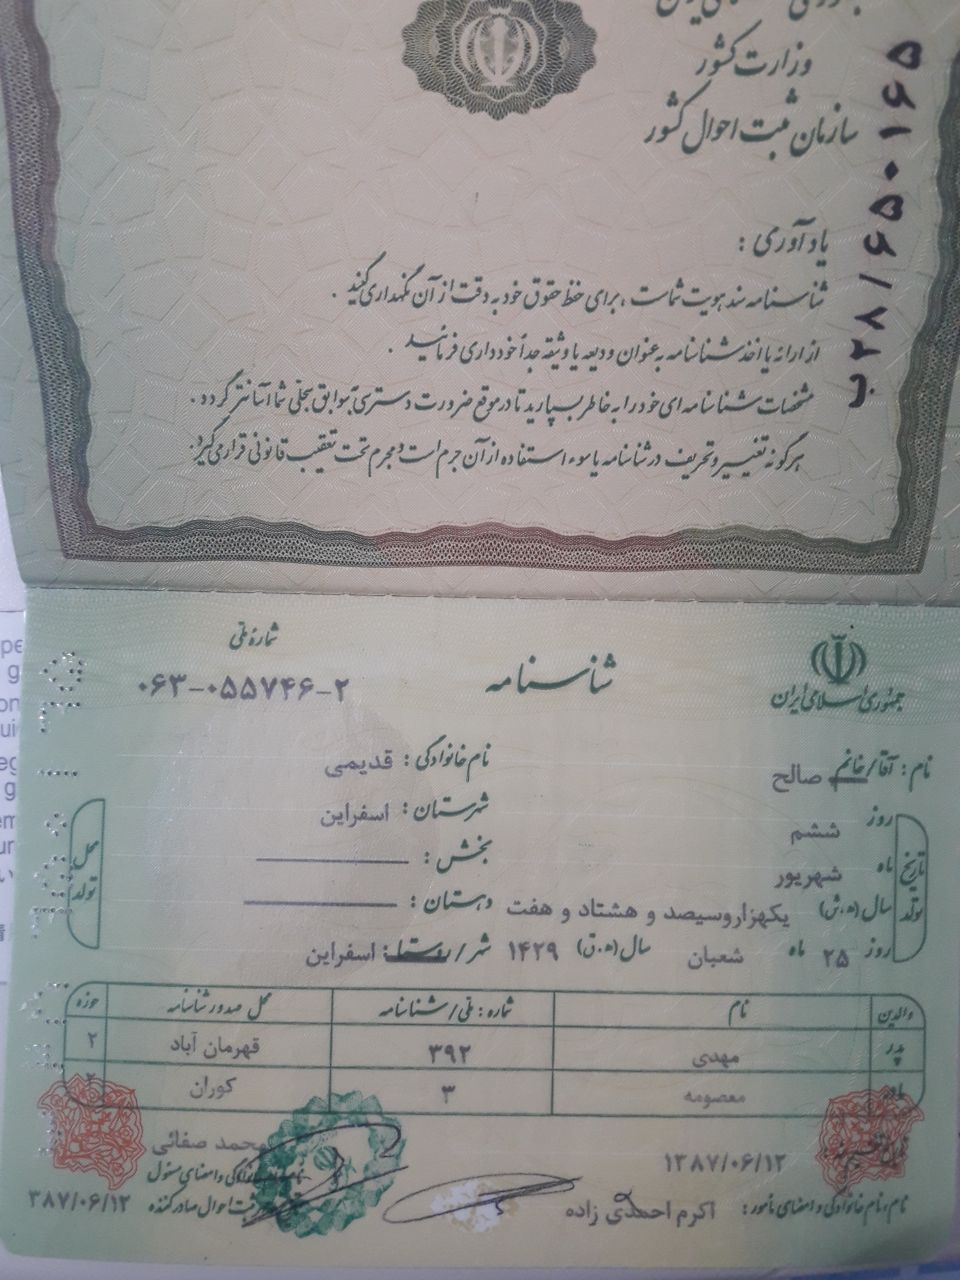 وزارت کشور
سازمان ثبت احوال کشور
ب۲۸/۶۵۰۱۶۵
یادآوری :
شناسنامه سند هویت شماست ، برای حفظ حقوق خود به دقت از آن نگهداری کنید .
از ارائه یا اخذ شناسنامه به عنوان ودیعه یا وثیقه جداً خودداری فرمائید .
مشخصات شناسنامه ای خود را به خاطر بسپارید تا در موقع ضرورت دسترسی به سوابق سجلی شما آسانتر گردد .
هرگونه تغییر و تحریف در شناسنامه یا سوء استفاده از آن جرم است و مجرم تحت تعقیب قانونی قرار می گیرد.
جمهوری اسلامی ایران
شناسنامه
شماره ملی
۰۶۳-۰۵۵۷۴۶-۲
نام : آقا/خانم صالح
نام خانوادگی : قدیمی
تاریخ تولد
روز ششم
ماه شهریور
سال (ه.ش) یکهزاروسیصد و هشتاد و هفت
روز ۲۵ ماه شعبان سال (ه.ق) ۱۴۲۹
محل تولد
شهرستان : اسفراین
بخش :
دهستان :
شهر/روستا : اسفراین
والدین نام شماره : ملی/شناسنامه محل صدور شناسنامه حوزه
پدر مهدی ۳۹۲ قهرمان آباد ۲
مادر معصومه ۳ کوران ۲
۱۳۸۷/۰۶/۱۲
نام، نام خانوادگی و امضای مامور : اکرم احمدی زاده
محمد صفائی
نام خانوادگی و امضای مسئول
ثبت احوال صادر کننده
۳۸۷/۰۶/۱۲